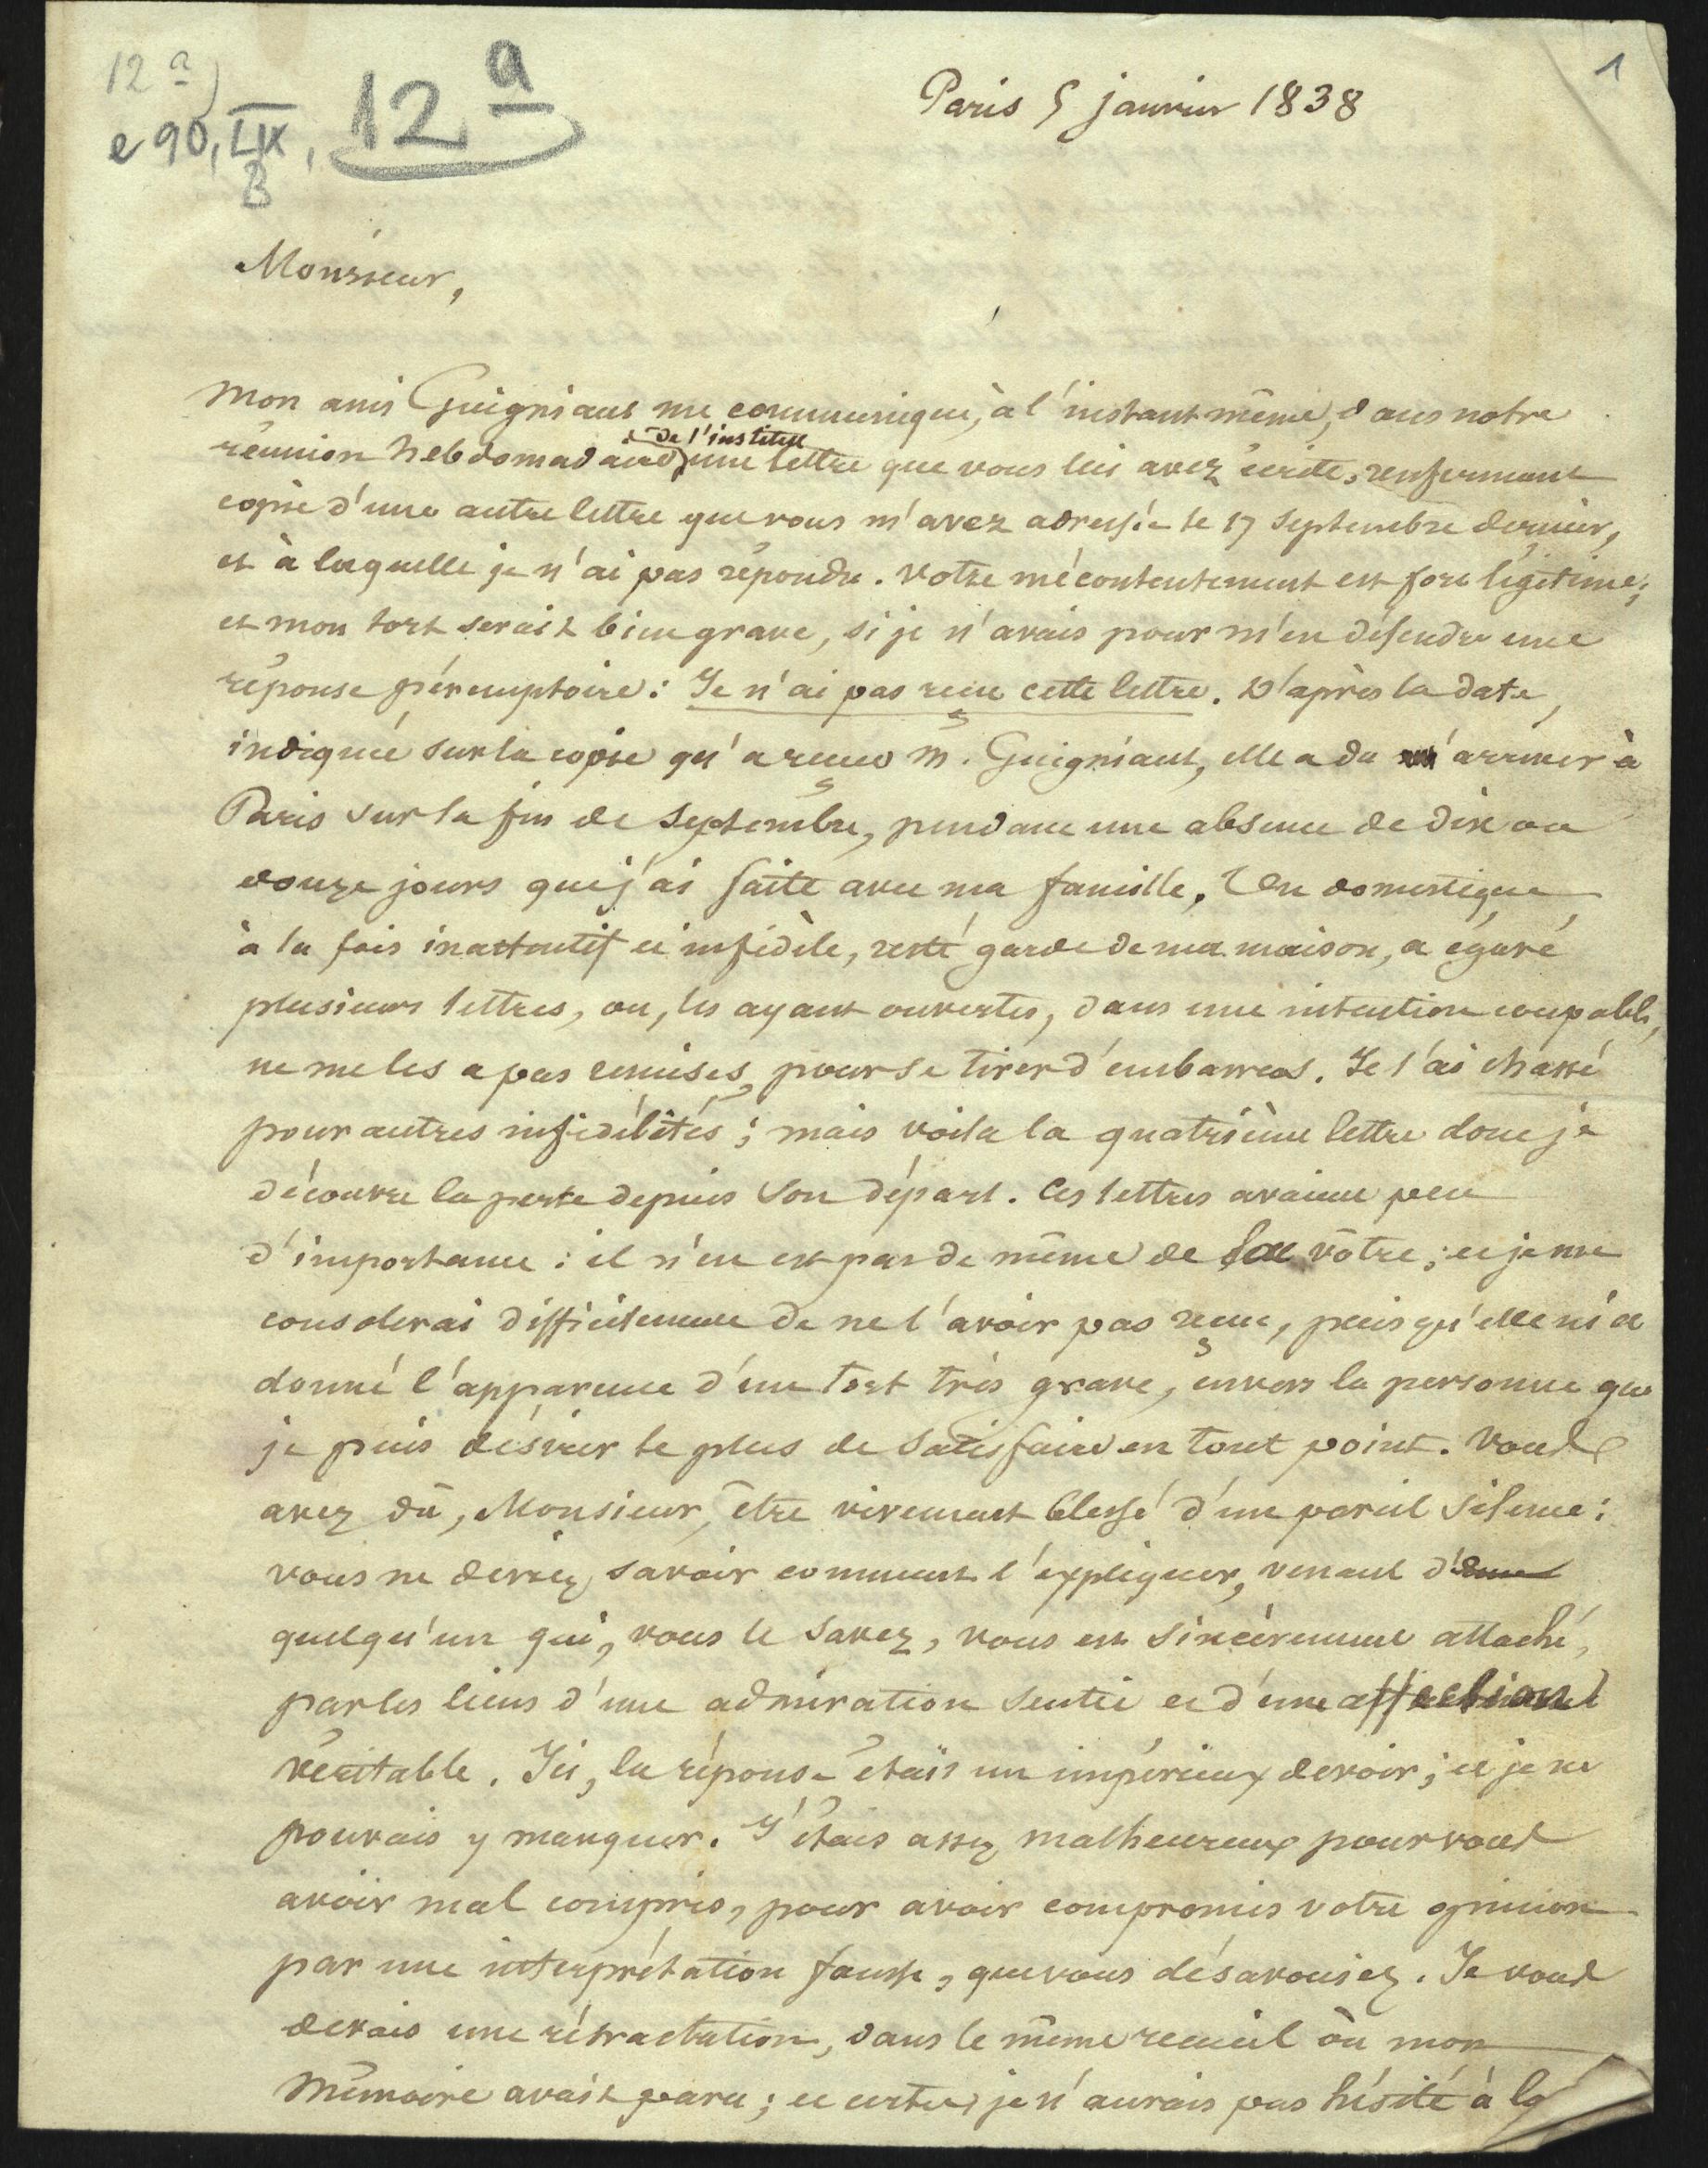 12 a)
e 90, LIX, 12 a
B
1
Paris 5 janvier 1838
Monsieur,
Mon ami Guigniaut me communique, à l'instant même, dans notre
de l'institut
réunion hebdomadaire, une lettre que vous lui avez écrite, renfermant
copie d'une autre lettre que vous m'avez adressée le 17 Septembre dernier,
et à laquelle je n'ai pas répondu. Votre mécontentement est fort légitime;
et mon tort serait bien grave, si je n'avais pour m'en défendre une
réponse péremptoire: Je n'ai pas reçu cette lettre. D'après la date,
indiquée sur la copie qu'a reçue M. Guigniaut, elle a du arriver à
Paris sur la fin de Septembre, pendant une absence de dix ou
douze jours que j'ai faite avec ma famille. Un domestique
à la fois inattentif et infidèle, resté garde de ma maison, a égaré
plusieurs lettres, ou, les ayant ouvertes, dans une intention coupable,
ne me les a pas remises, pour se tirer d'embarras. Je l'ai chassé
pour autres infidélités; mais voila la quatrième lettre dont je
découvre la perte depuis son départ. Ces lettres avaient peu
d'importance: il n'en est pas de même de la vôtre; et je me
consolerai difficilement de ne l'avoir pas reçue, puisqu'elle m'a
donné l'apparence d'un tort très grave, envers la personne que
je puis désirer le plus de satisfaire en tout point. Vous
avez dû, Monsieur, être vivement blessé d'un pareil silence:
vous ne deviez savoir comment l'expliquer, venant d'une
quelqu'un qui, vous le savez, vous est sincèrement attaché,
par les liens d'une admiration sentie et d'une affection
véritable. Ici, la réponse était un impérieux devoir; et je ne
pouvais y manquer. J'étais assez malheureux pour vous
avoir mal compris, pour avoir compromis votre opinion
par une interprétation fausse, que vous désavouiez. Je vous
devais une rétractation, dans le même recueil où mon
Mémoire avait paru; et certes, je n'aurais pas hésité à la